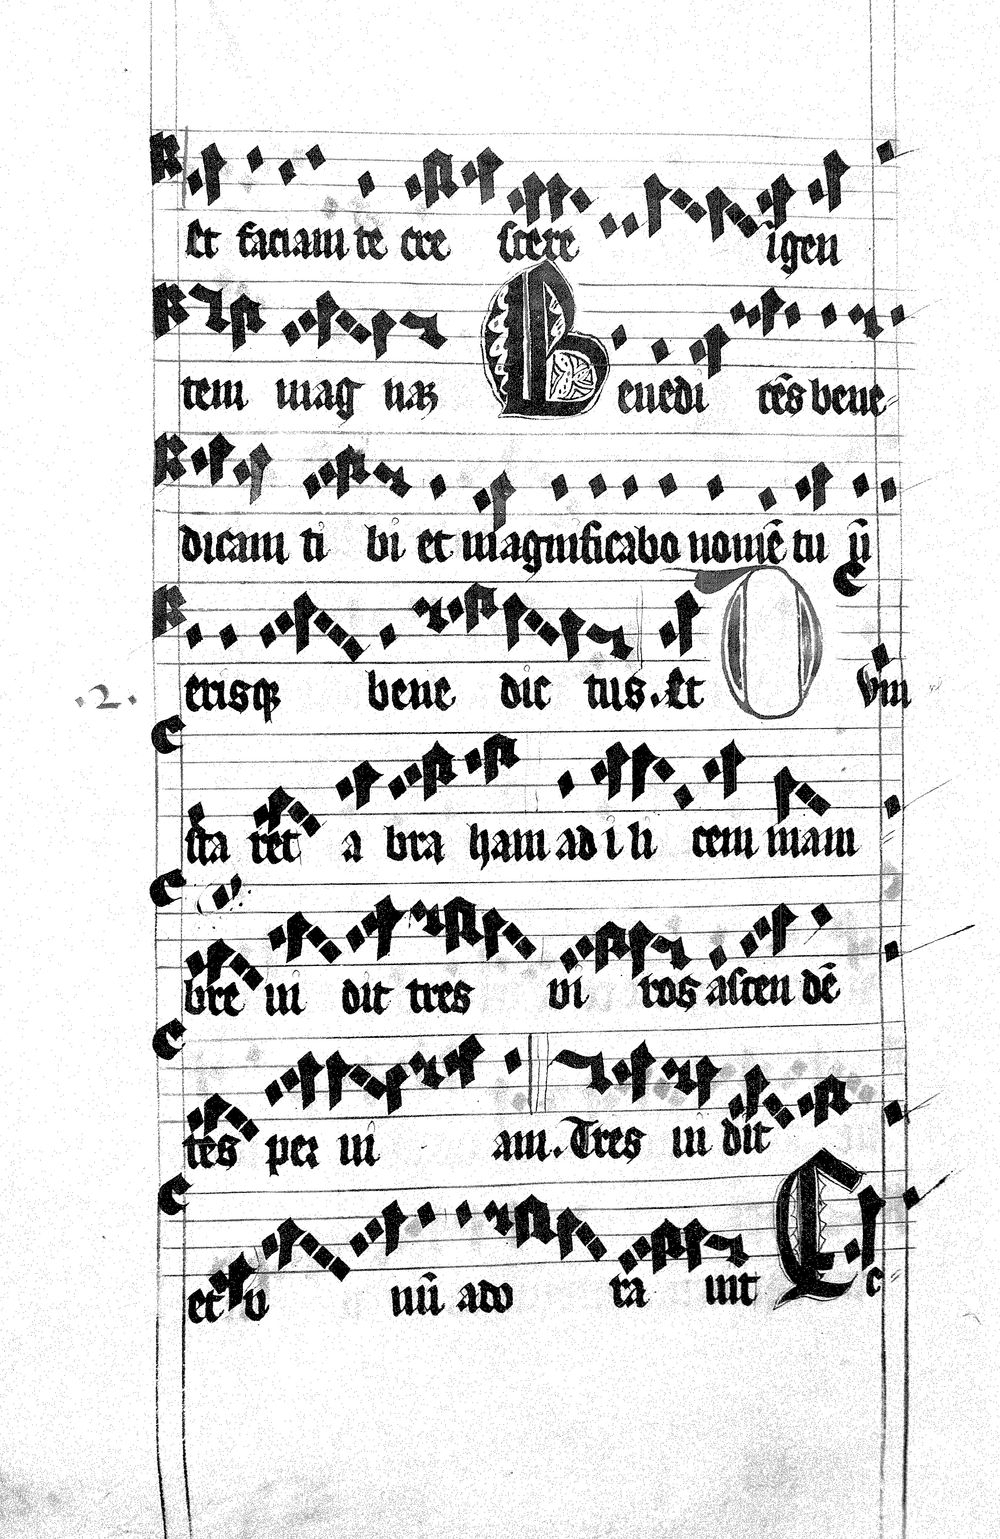 Et faciam te cre scere i gen
tem mag naꝫ Benedi cēs bene⸗
dicam ti bi et magnificabo nomē tuū
erisqꝫ bene dic tus. Et Dum
.2.
sta ret a bra ham ad i li cem mam
bre vi dit tres vi ros ascen dē
tes per vi am. Tres vi dit
et v nū ado ra uit Ec⸗